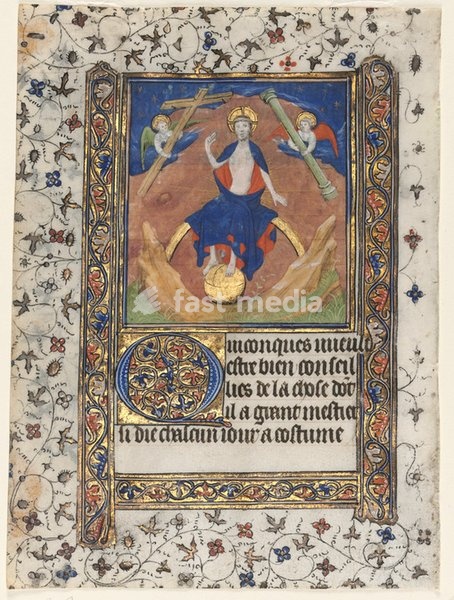 fast media
Quiconques uueult
estre bien conseil
lies de la chose dōt
il a grant mestier
li die chascun iour a costume